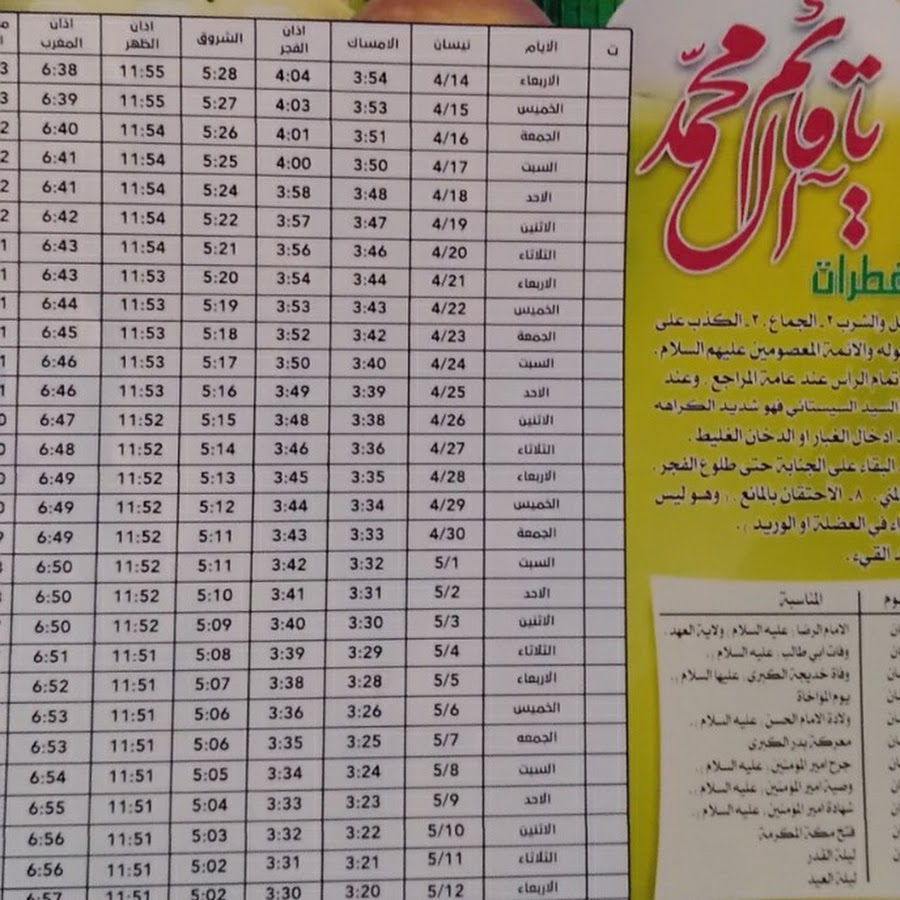 ت الايام نيسان الامساك اذان الفجر الشروق اذان الظهر اذان المغرب
الاربعاء 4/14 3:54 4:04 5:28 11:55 6:38
الخميس 4/15 3:53 4:03 5:27 11:55 6:39
الجمعة 4/16 3:51 4:01 5:26 11:54 6:40
السبت 4/17 3:50 4:00 5:25 11:54 6:41
الاحد 4/18 3:48 3:58 5:24 11:54 6:41
الاثنين 4/19 3:47 3:57 5:22 11:54 6:42
الثلاثاء 4/20 3:46 3:56 5:21 11:54 6:43
الاربعاء 4/21 3:44 3:54 5:20 11:53 6:43
الخميس 4/22 3:43 3:53 5:19 11:53 6:44
الجمعة 4/23 3:42 3:52 5:18 11:53 6:45
السبت 4/24 3:40 3:50 5:17 11:53 6:46
الاحد 4/25 3:39 3:49 5:16 11:53 6:46
الاثنين 4/26 3:38 3:48 5:15 11:52 6:47
الثلاثاء 4/27 3:36 3:46 5:14 11:52 6:48
الاربعاء 4/28 3:35 3:45 5:13 11:52 6:49
الخميس 4/29 3:34 3:44 5:12 11:52 6:49
الجمعة 4/30 3:33 3:43 5:11 11:52 6:49
السبت 5/1 3:32 3:42 5:11 11:52 6:50
الاحد 5/2 3:31 3:41 5:10 11:52 6:50
الاثنين 5/3 3:30 3:40 5:09 11:52 6:50
الثلاثاء 5/4 3:29 3:39 5:08 11:51 6:51
الاربعاء 5/5 3:28 3:38 5:07 11:51 6:52
الخميس 5/6 3:26 3:36 5:06 11:51 6:53
الجمعه 5/7 3:25 3:35 5:06 11:51 6:53
السبت 5/8 3:24 3:34 5:05 11:51 6:54
الاحد 5/9 3:23 3:33 5:04 11:51 6:55
الاثنين 5/10 3:22 3:32 5:03 11:51 6:56
الثلاثاء 5/11 3:21 3:31 5:02 11:51 6:56
الاربعاء 5/12 3:20 3:30 5:02 11:51 6:57
يا قائم آل محمد
والشرب ٢ـ الجماع . ٣ـ الكذب على
والائمة المعصومين عليهم السلام.
الرأس عند عامة المراجع . وعند
السيد السيستاني فهو شديد الكراهه
ادخال الغبار او الدخان الغليظ .
البقاء على الجنابة حتى طلوع الفجر.
٨ـ الاحتقان بالمائع . ( وهو ليس
في العضلة او الوريد ).
القيء .
المناسبة
الامام الرضا ( عليه السلام ) ولاية العهد .
وفات ابي طالب ( عليه السلام ).
وفاة خديجة الكبرى ( عليها السلام ).
يوم المؤاخاة
ولادة الامام الحسن ( عليه السلام ).
معركة بدر الكبرى
جرح امير المؤمنين ( عليه السلام ).
وصية امير المؤمنين ( عليه السلام ).
شهادة امير المؤمنين ( عليه السلام ).
فتح مكة المكرمة
ليلة القدر
ليلة العيد